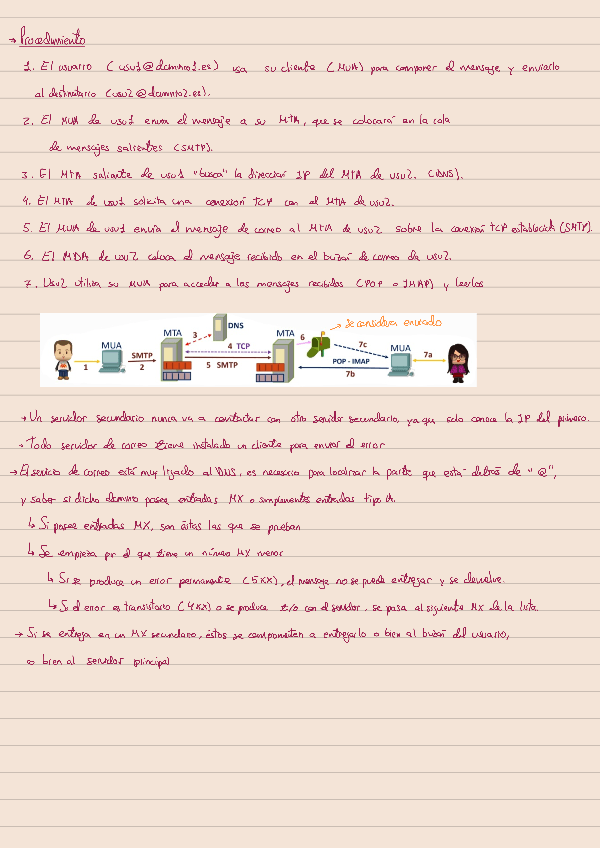 → Procedimiento
1. El usuario (usu1@dominio1.es) usa su cliente (MUA) para componer el mensaje y enviarlo
al destinatario (usu2@dominio2.es).
2. El MUA de usu1 envia el mensaje a su MTA, que se colocará en la cola
de mensajes salientes (SMTP).
3. El MTA saliente de usu1 "busca" la dirección IP del MTA de usu2. (DNS).
4. El MTA de usu1 solicita una conexión TCP con el MTA de usu2.
5. El MUA de usu1 envía el mensaje de correo al MTA de usu2 sobre la conexión TCP establecida (SMTP).
6. El MDA de usu2 coloca el mensaje recibido en el buzón de correo de usu2.
7. Usu2 utiliza su MUA para acceder a los mensajes recibidos (POP o IMAP) y leerlos
→ Se considera enviado
DNS
MTA
3
MTA
6
MUA
SMTP
4 TCP
7c
MUA
7a
1
2
5 SMTP
POP - IMAP
7b
→ Un servidor secundario nunca va a contactar con otro servidor secundario, ya que solo conoce la IP del primero.
→ Todo servidor de correo tiene instalado un cliente para enviar el error
→ El servicio de correo está muy ligado al DNS, es necesario para localizar la parte que está detrás de "@",
y saber si dicho dominio posee entradas MX o simplementes entradas tipo A.
↳ Si posee entradas MX, son éstas las que se prueban
↳ Se empieza por el que tiene un número MX menor
↳ Si se produce un error permanente (5XX), el mensaje no se puede entregar y se devuelve.
↳ Si el error es transitorio (4XX) o se produce t/o con el servidor, se pasa al siguiente MX de la lista.
→ Si se entrega en un MX secundario, éstos se comprometen a entregarlo o bien al buzón del usuario,
o bien al servidor principal